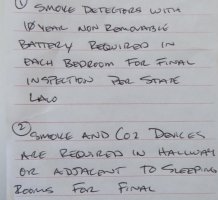 ① SMOKE DETECTORS WITH
10 YEAR NON REMOVABLE
BATTERY REQUIRED IN
EACH BEDROOM FOR FINAL
INSPECTION PER STATE
LAW
② SMOKE AND CO2 DEVICES
ARE REQUIRED IN HALLWAY
OR ADJACENT TO SLEEPING
ROOMS FOR FINAL